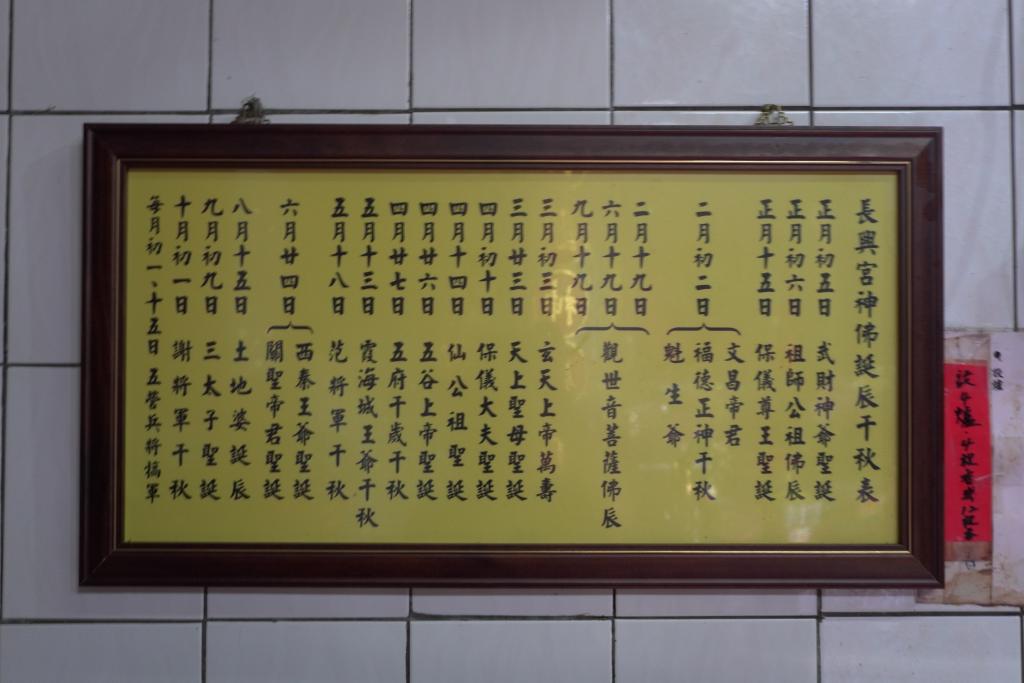 長興宮神佛誕辰千秋表
正月初五日 武財神爺聖誕
正月初六日 祖師公祖佛辰
正月十五日 保儀尊王聖誕
二月初二日
文昌帝君
福德正神千秋
魁生爺
二月十九日
六月十九日
九月十九日
觀世音菩薩佛辰
三月初三日 玄天上帝萬壽
三月廿三日 天上聖母聖誕
四月初十日 保儀大夫聖誕
四月十四日 仙公祖聖誕
四月廿六日 五谷上帝聖誕
四月廿七日 五府千歲千秋
五月十三日 霞海城王爺千秋
五月十八日 范將軍千秋
六月廿四日
西秦王爺聖誕
關聖帝君聖誕
八月十五日 土地婆誕辰
九月初九日 三太子聖誕
十月初一日 謝將軍千秋
每月初一、十五日 五營兵將犒軍